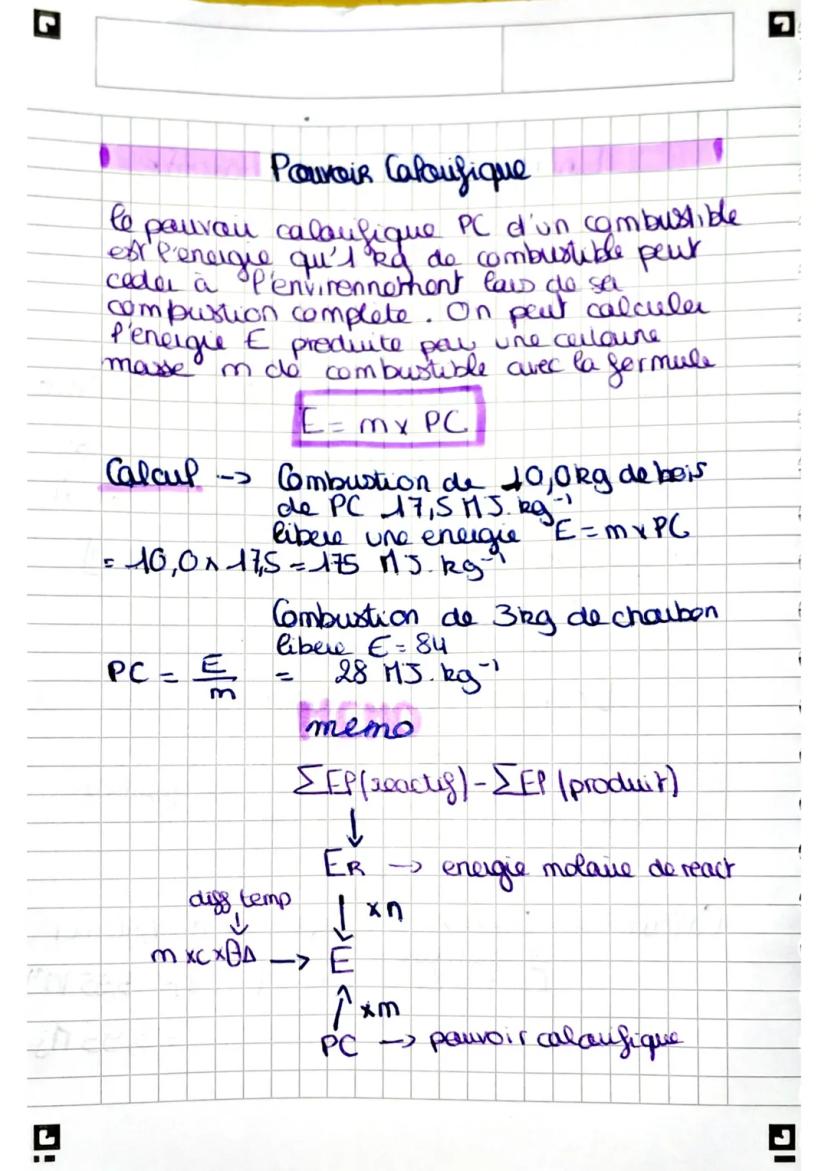 Pouvoir Calorifique
le pouvoir calorifique PC d'un combustible
est l'energie qu'1 kg de combustible peut
ceder à l'environnement lors de sa
combustion complete. On peut calculer
l'energie E produite par une certaine
masse m de combustible avec la formule
E = m x PC
Calcul -> Combustion de 10,0kg de bois
de PC 17,5 MJ.kg⁻¹
libere une energie E = m x PC
= 10,0 x 17,5 = 175 MJ.kg⁻¹
Combustion de 3kg de charbon
libere E = 84
PC = E/m = 28 MJ.kg⁻¹
MEMO
memo
ΣEP(reactif) - ΣEP (produit)
↓
ER -> energie molaire de react
diff temp ↓ xn
↓
m xcxθΔ -> E
↑ xm
PC -> pouvoir calorifique